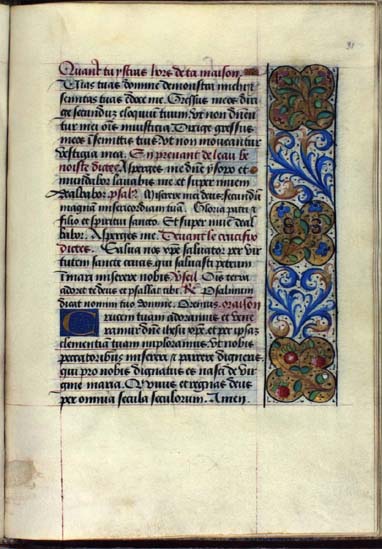 31
Quant tu ystras hors de ta maison
Vias tuas domine demonstra michi et
semitas tuas doce me. Gressus meos diri
ge secundum eloquium tuum. ut non domin
tur mei ois iniusticia. Dirige gressus
meos in semitis tuis. ut non moueantur
vestigia mea. En prenant de leau be
noiste dictes. Asperges me dne ysopo et
mundabor lauabis me et super niuem
dealbabor. psal. Miserere mei deus. secundu
magna misericordiam tua. Gloria patri et
filio et spiritui sancto. Et super niue deal
babor. Asperges me. Deuant le crucifix
dictes. Salua nos xpe saluator per vir
tutem sancte crucis. qui saluasti petrum
in mari miserere nobis. Ois terra
adoret te deus et psallat tibi. Psalmum
dicat nomini tuo domine. Oremus. oraison
Crucem tuam adoramus et vene
ramur dne ihesu xpe. et per ipsam
clementiam tuam imploramus. ut nobis
peccatoribus miserere et parcere digneris.
qui pro nobis dignatus es nasci de vir
gine maria. Qui viuis et regnas deus
per omnia secula seculorum. Amen